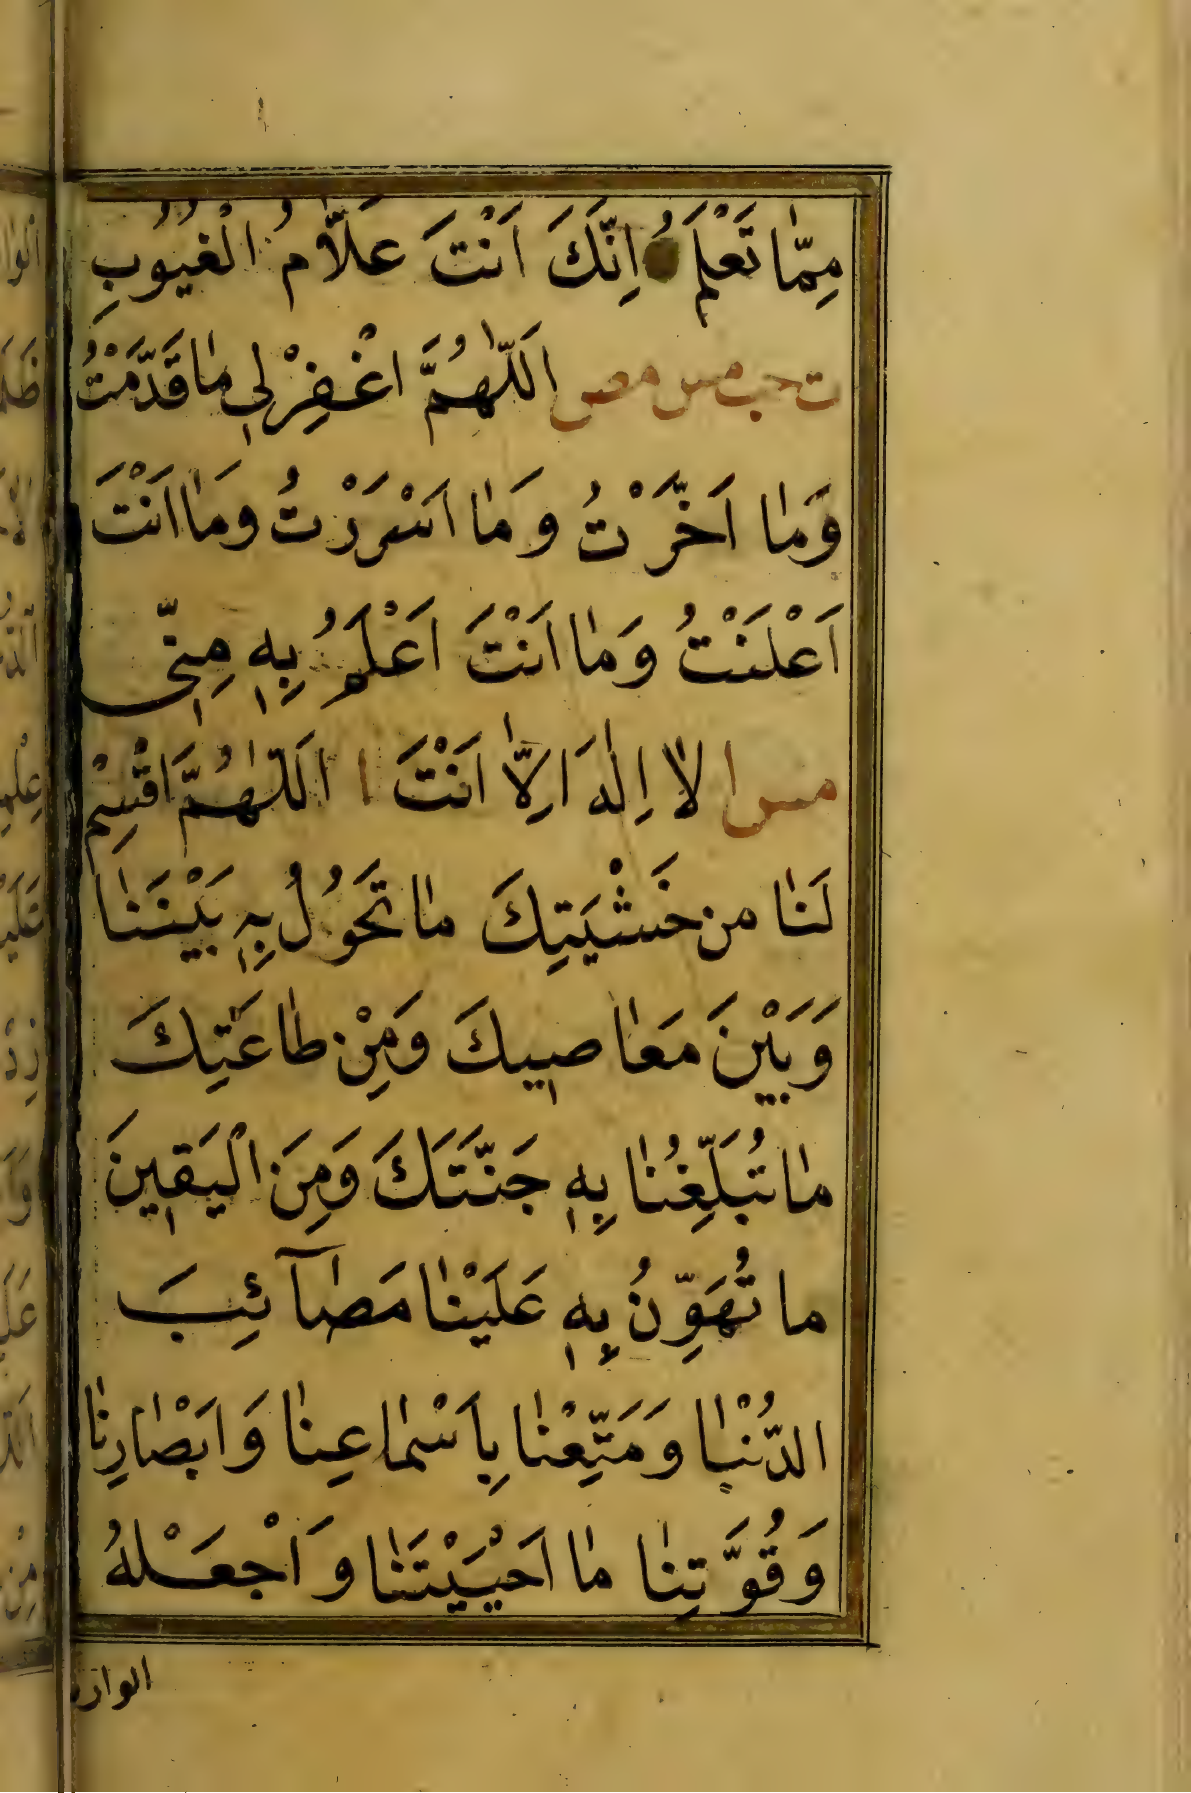 مِمَّا تَعْلَمُ اِنَّكَ اَنْتَ عَلَّامُ الْغُيُوبِ
ت حب مس مص اَللّٰهُمَّ اغْفِرْلِي مَا قَدَّمْتُ
وَمَا اَخَّرْتُ وَمَا اَسْرَرْتُ وَمَا اَنْتَ
اَعْلَنْتُ وَمَا اَنْتَ اَعْلَمُ بِهٖ مِنّٖي
مس ا لَا اِلٰهَ اِلَّا اَنْتَ ا اَللّٰهُمَّ اقْسِمْ
لَنَا من خَشْيَتِكَ مَا تَحَوُلُ بِهٖ بَيْنَنَا
وَبَيْنَ مَعَاصٖيكَ وَمِنْ طَاعَتِكَ
مَا تُبَلِّغُنَا بِهٖ جَنَّتَكَ وَمِنَ الْيَقٖينَ
مَا تُهَوِّنُ بِهٖ عَلَيْنَا مَصَآئِبَ
الدُّنْيَا وَمَتِّعْنَا بِاَسْمَاعِنَا وَاَبْصَارِنَا
وَقُوَّتِنَا مَا اَحْيَيْتَنَا وَاَجْعَلْهُ
الوارث